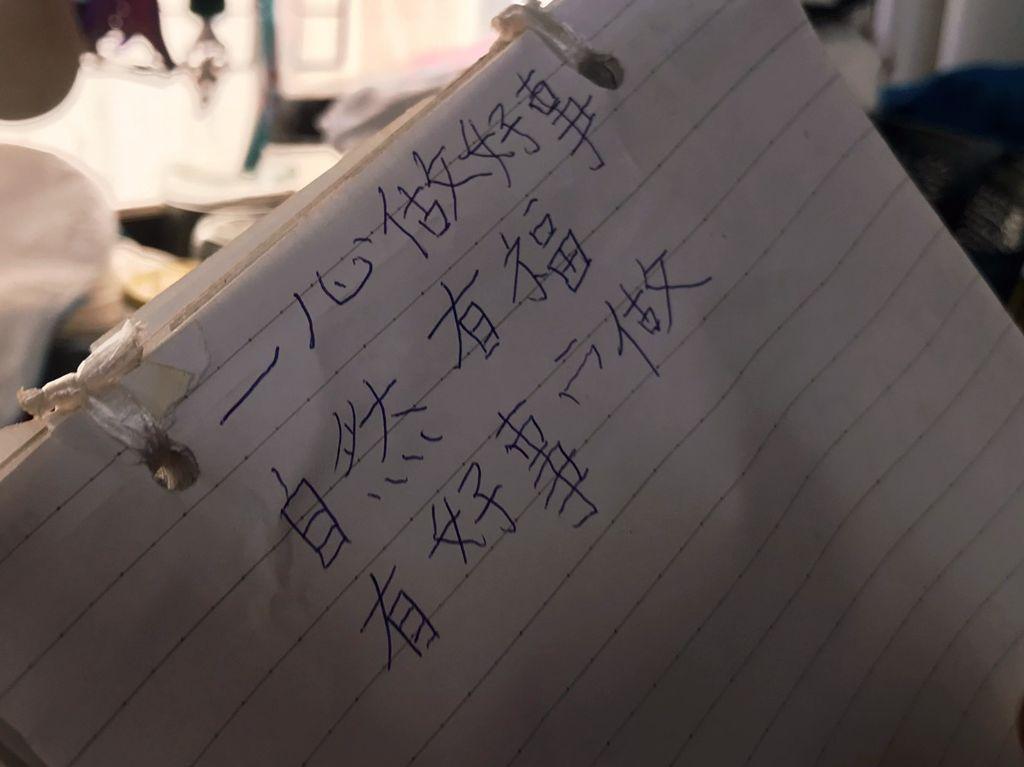 一心做好事
自然有福
有好事做